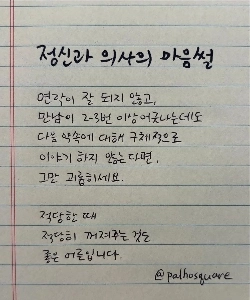 정신과 의사의 마음썰
연락이 잘 되지 않고,
만남이 2-3번 이상 어긋나는데도
다음 약속에 대해 구체적으로
이야기 하지 않는다면,
그만 괴롭히세요.
적당한 때
적당히 꺼져주는 것도
좋은 어른입니다.
@palhosquare